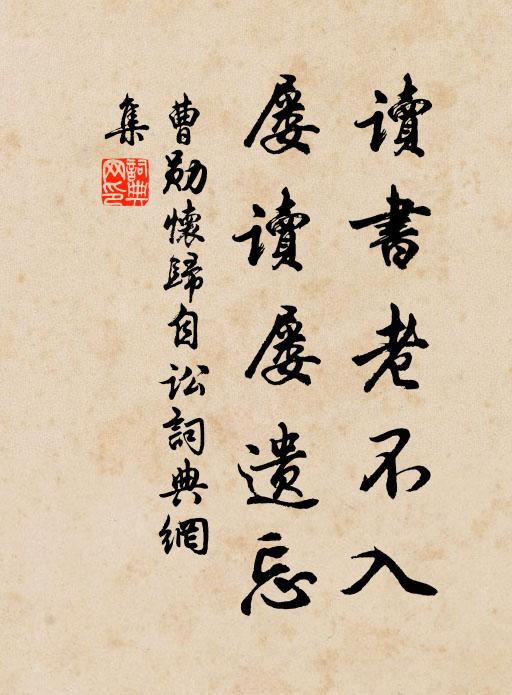 讀書老不入
屢讀屢遺忘
曹勛懷歸自訟詞典網
集
詞典網印